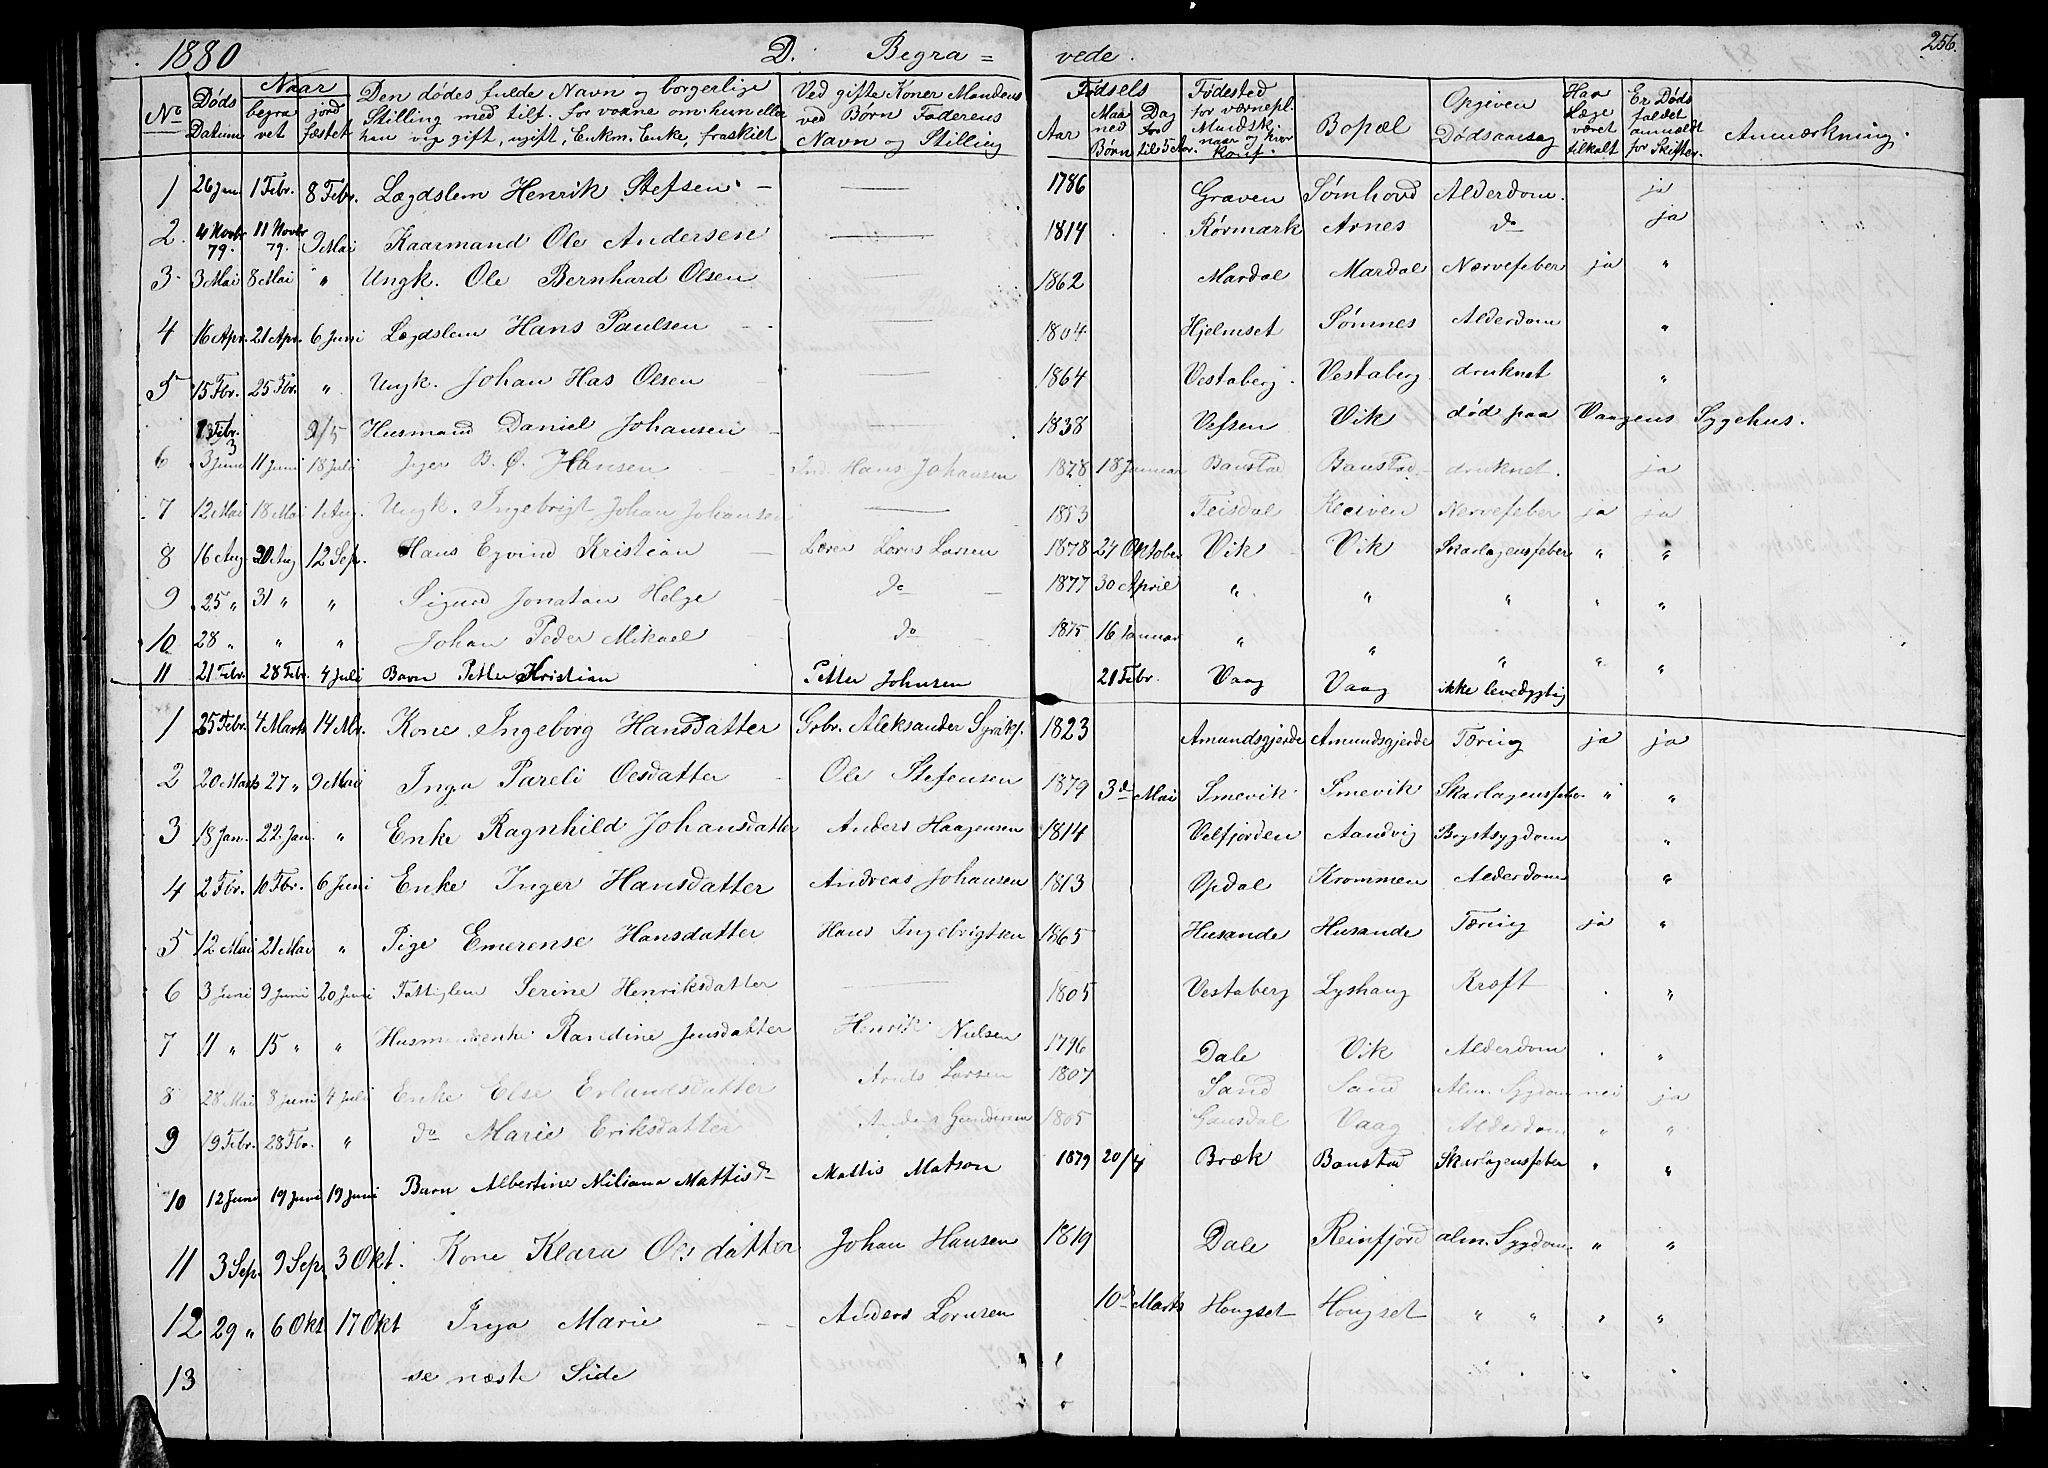 1880 D. Begra= vede. 256.
No Døds Datum Naar begra vet jord fæstet Den dødes fulde Navn og borgerlige Stilling med tilf. for voxne om hun eller han var gift, ugift, Enkm. Enke, fraskilt Ved gifte Koner Mandens ved Børn Faderens Navn og Stilling Fødsels Aar Maa ned Dag for Børn til 5 Aar. Fødested for værnepl. Mandsk. naar og hvor konf. Bopæl Opgiven Dødsaarsag Har Læge været tilkalt Er Døds faldet anmeldt for Skifter. Anmærkning.
1 26 Jan. 1 Febr. 8 Febr. Lægdslem Henrik Stefsen — 1786 Graven Sømhovd Alderdom. ja
2. 4 Novbr 79. 11 Novbr 79. 9 Mai Kaarmand Ole Andersen — 1814 Rørmark Arnes do ja
3 3 Mai 8 Mai " Ungk. Ole Bernhard Olsen — 1862 Mardal Mardal Nervefeber ja "
4 16 Apr. 21 Apr. 6 Juni Lægdslem Hans Paulsen — 1804 Hjelmset Sømnes Alderdom "
5 15 Fbr. 25 Fbr. " Ungk. Johan Has Olsen — 1864 Vestaberg Vestaberg druknet "
13 Febr. 9/5 Husmand Daniel Johansen — 1838 Vefsen Vik død paa Vaagens Sygehus.
6 3 Juni 11 Juni 18 Juli B. Ø. Hansen Ind. Hans Johansen 1878 18 Januar Baustad Baustad druknet. ja
7 12 Mai 18 Mai 1 Aug. Ungk. Ingebrigt Johan Johansen — 1853 Feisdal Nervefeber ja ja
8 16 Aug. 20 Aug 12 Sep. Hans Eyvind Kristian Lærer Lorns Larsen 1878 24 Oktober Vik Vik Skarlagensfeber " "
9 25 " 31 " " Sigurd Jonatan Helge do 1877 30 April " " " " "
10 28 " " " Johan Peder Mikael do 1875 16 Januar " " " " "
11 21 Febr. 28 Febr. 4 Juli Barn Petter Kristian Petter Johnsen 21 Febr. Vaag Vaag ikke levedygtig
1 25 Febr. 4 Marts 14 Mr. Kone Ingeborg Hansdatter Grbr. Aleksander 1823 Amundsgjerde Amundsgjerde Tæring ja ja
2 20 Marts 27 " 9 Mai Inga Pareli Oesdatter Ole Stefensen 1879 3d Mai Smevik Smevik Skarlagensfeber " "
3 18 Jan. 22. Jan. " Enke Ragnhild Johansdatter Anders Haagensen 1814 Velfjorden Aandvig Brystsygdom "
4 2 Fbr. 10 Fbr. 6 Juni Enke Inger Hansdatter Andreas Johansen 1813 Opdal Krommen Alderdom "
5 12 Mai 21 Mai " Pige Emerense Hansdatter Hans Ingebrigtsen 1865 Husande Husande Tæring ja "
6 3 Juni 9 Juni 20 Juni Fattiglem Serine Henriksdatter — 1805 Vestaberg Lyshaug Kræft . "
7 11 " 15 " " Husmandsenke Randine Jensdatter Henrik Nielsen 1796 Dale Vik Alderdom . "
8 28 Mai 8 Juni 4 Juli Enke Else Erlandsdatter Arnts Larsen 1807 Sand Sand Alm. Sygdom nei ja
9 19 Febr. 28 Fbr. " do Marie Eriksdatter Anders Gundersen 1805 Gausdal Vaag Alderdom " "
10 12 Juni 19 Juni 19 Juni Barn Albertine Miliana Mattisd Mattis Matson 1879 20/4 Bræk Baustad Skarlagensfeber " "
11 3 Sep. 9 Sep. 3 Okt. Kone Klara Olsdatter Johan Hansen 1819 Dale Reinfjord alm. Sygdom " "
12 29 " 6 Okt 17 Okt Inga Marie Anders Lornsen 10d Marts Hongset Hongset " " " "
13 se næste Side